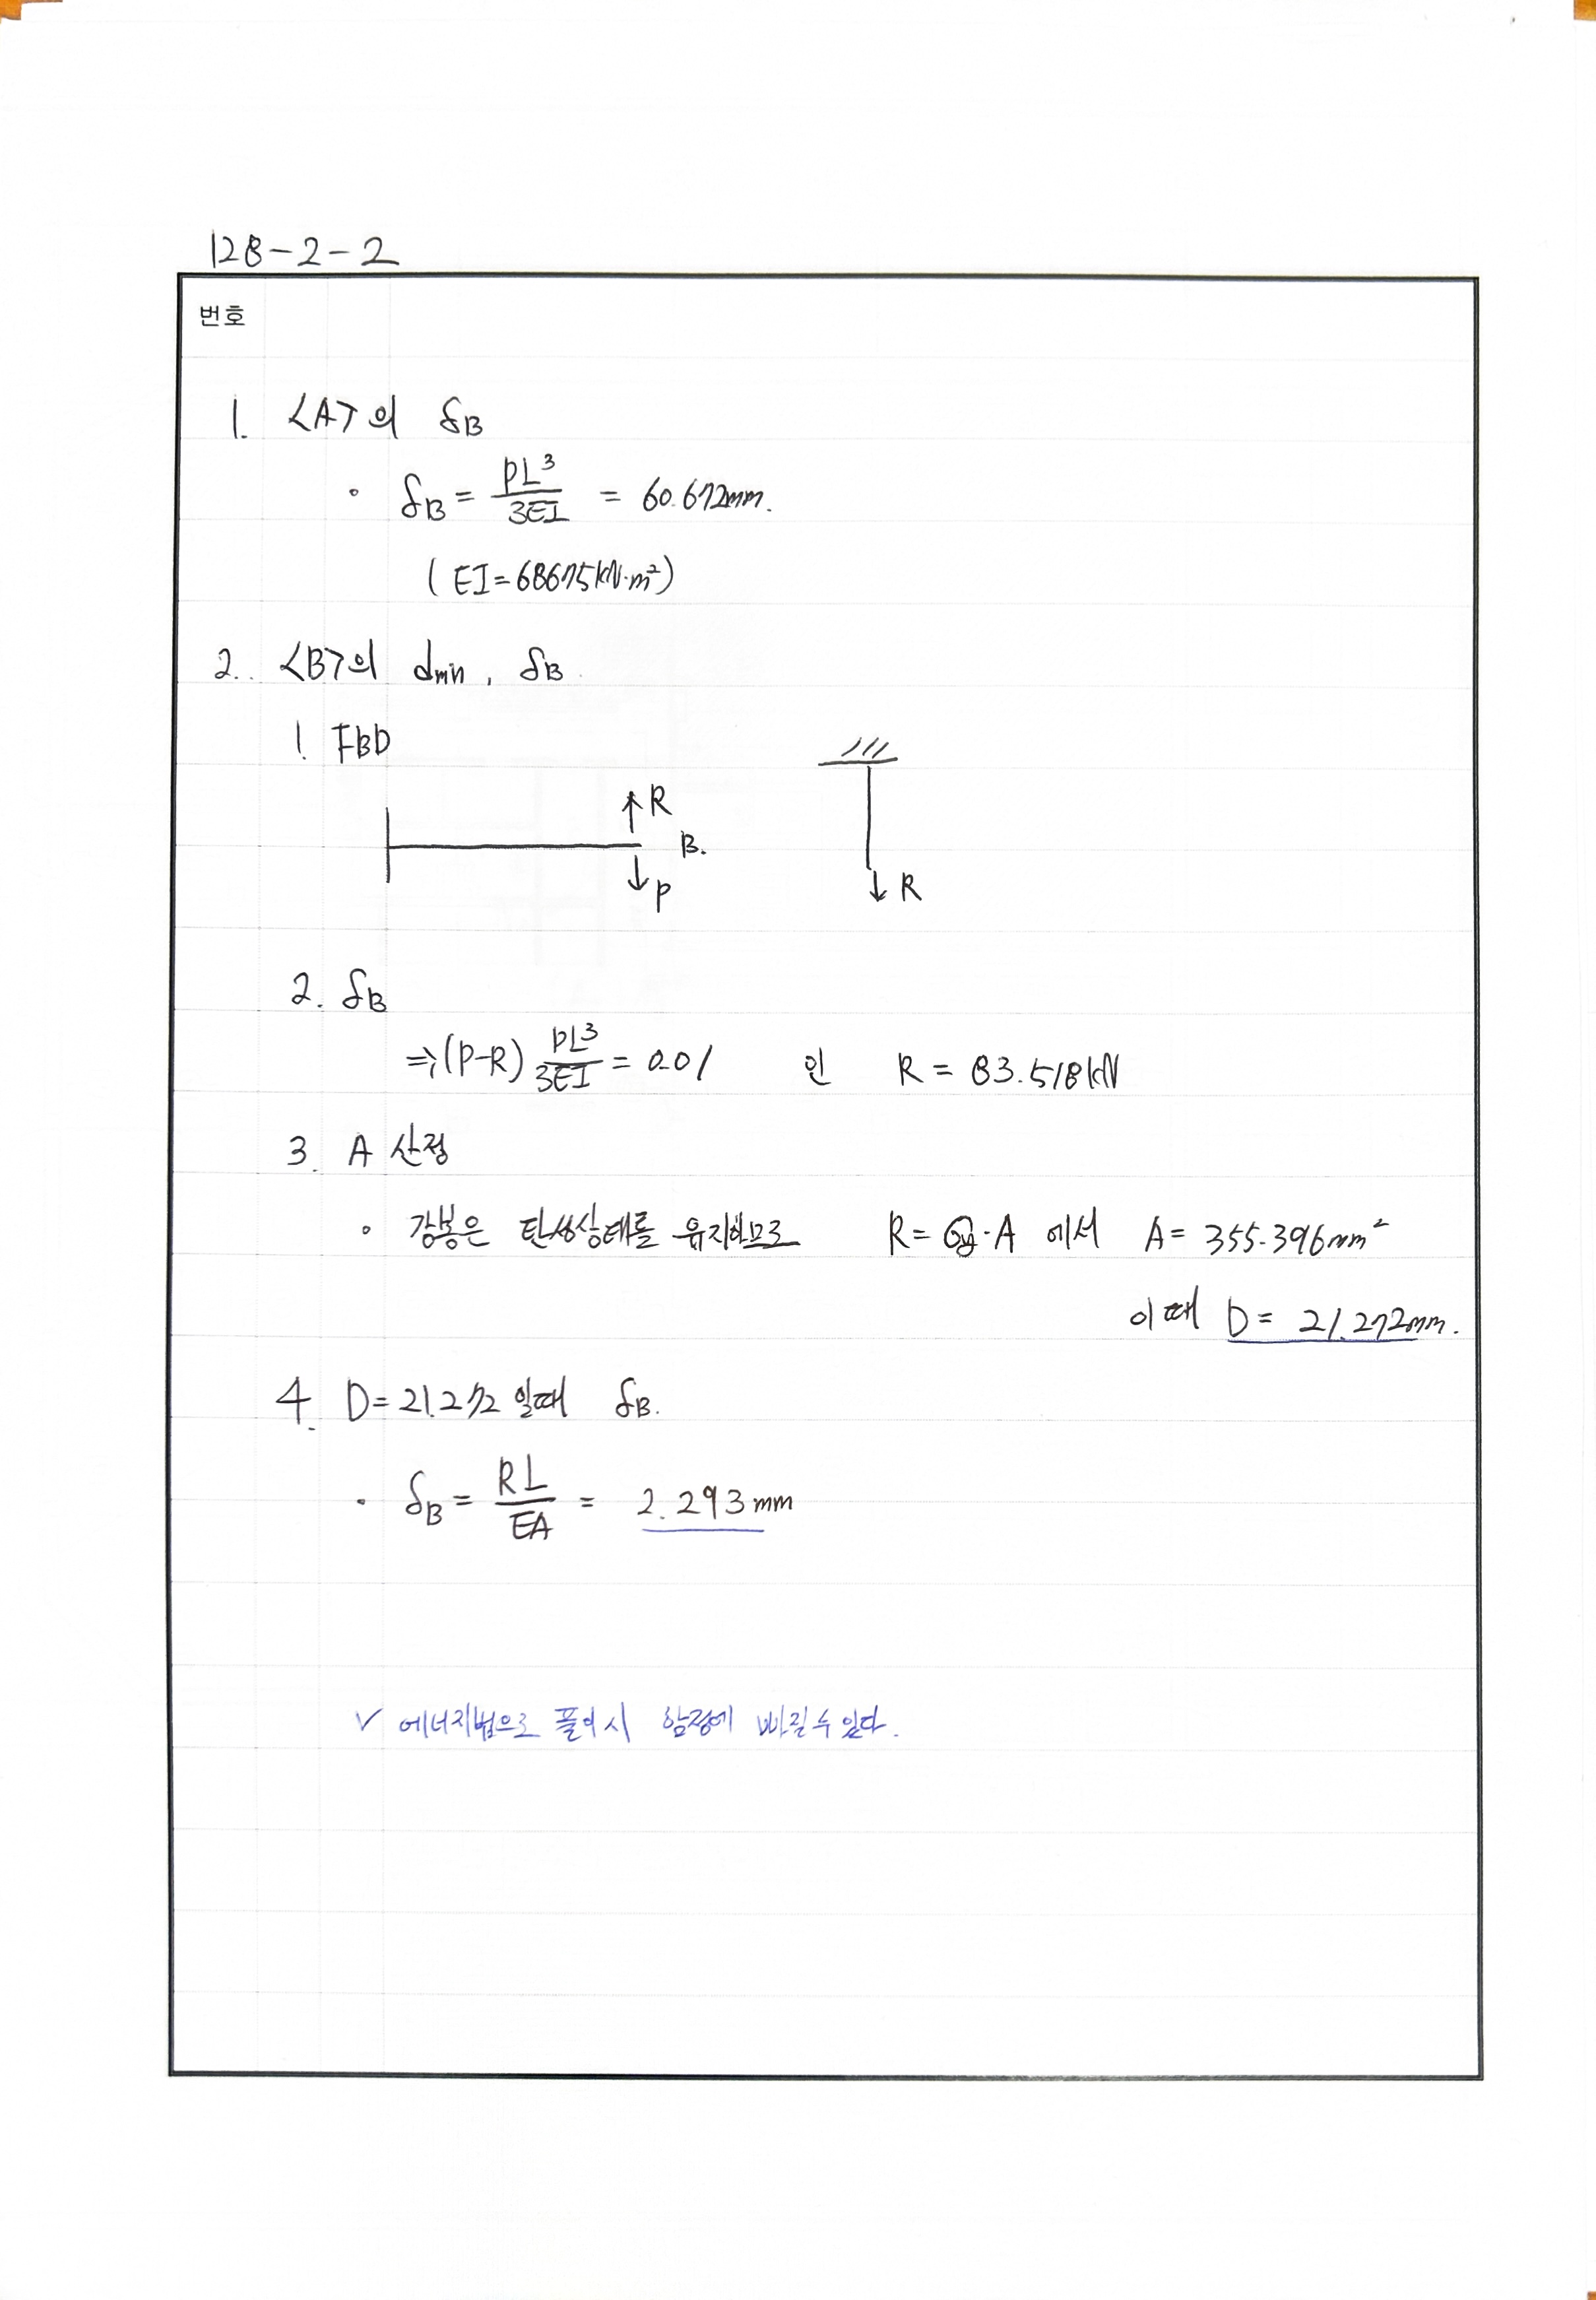 128-2-2
번호
1. <A>의 δB
• δB = PL³/3EI = 60.672mm.
(EI=68675kN·m²)
2. <B>의 dmin, δB.
1 FBD
R
B.
P
R
2. δB
⇒ (P-R) PL³/3EI = 0.01 인 R = 83.518kN
3. A 산정
• 강봉은 탄성상태를 유지하므로 R= σy·A 에서 A= 355.396mm²
이때 D= 21.272mm.
4. D=21.272 일때 δB.
• δB = RL/EA = 2.293mm
✓ 에너지법으로 풀이시 함정에 빠질수있다.